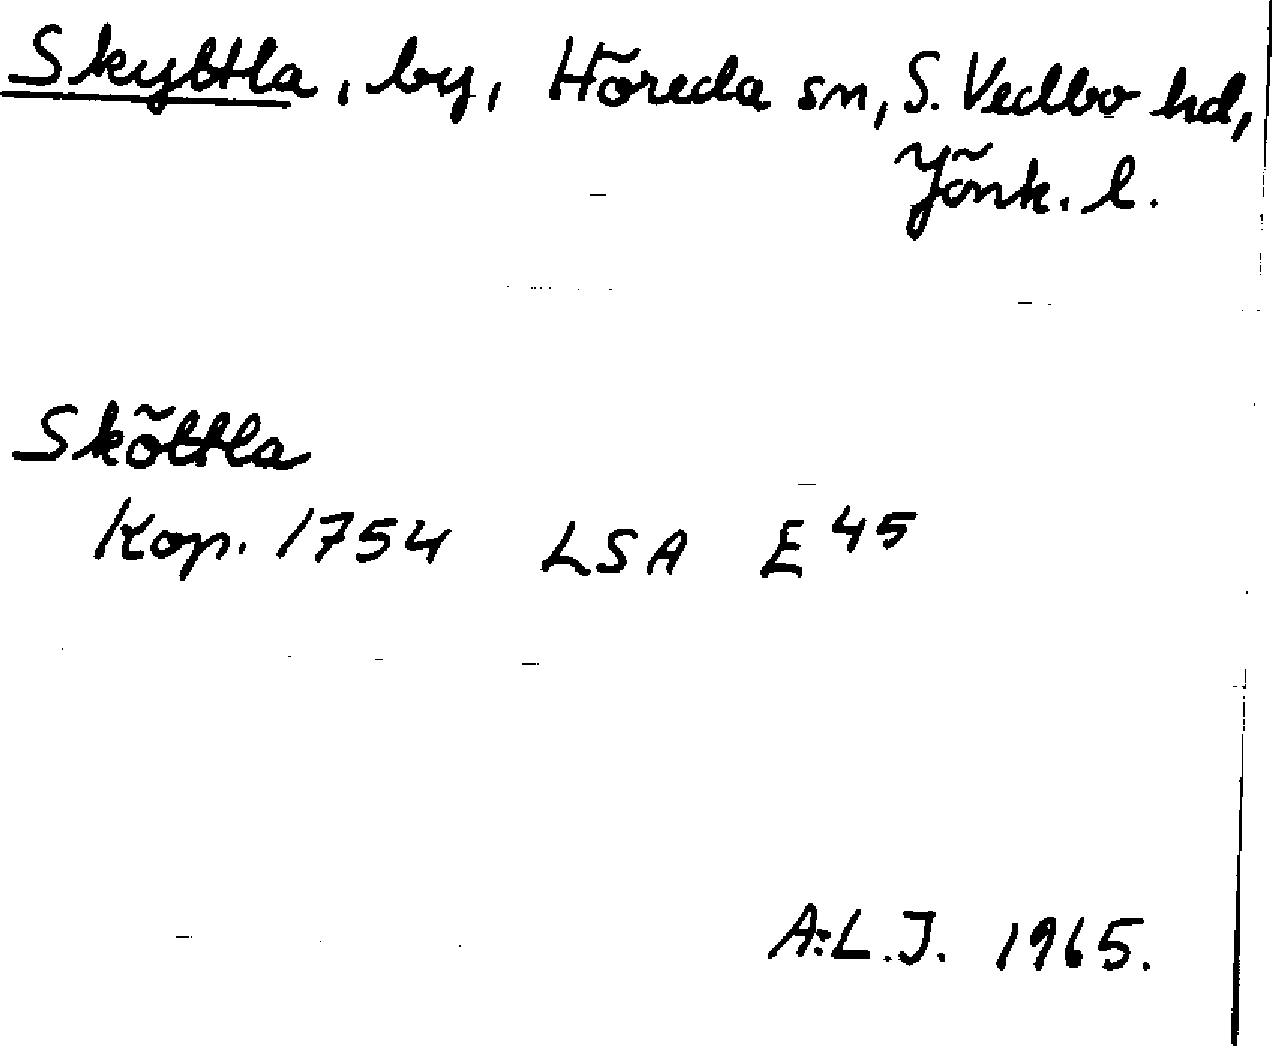 Skyttla, by, Höreda sn, S. Vedbo hd,
Jönk. l.
Sköttla
Kop. 1754 LSA E 45
A:L.J. 1965.